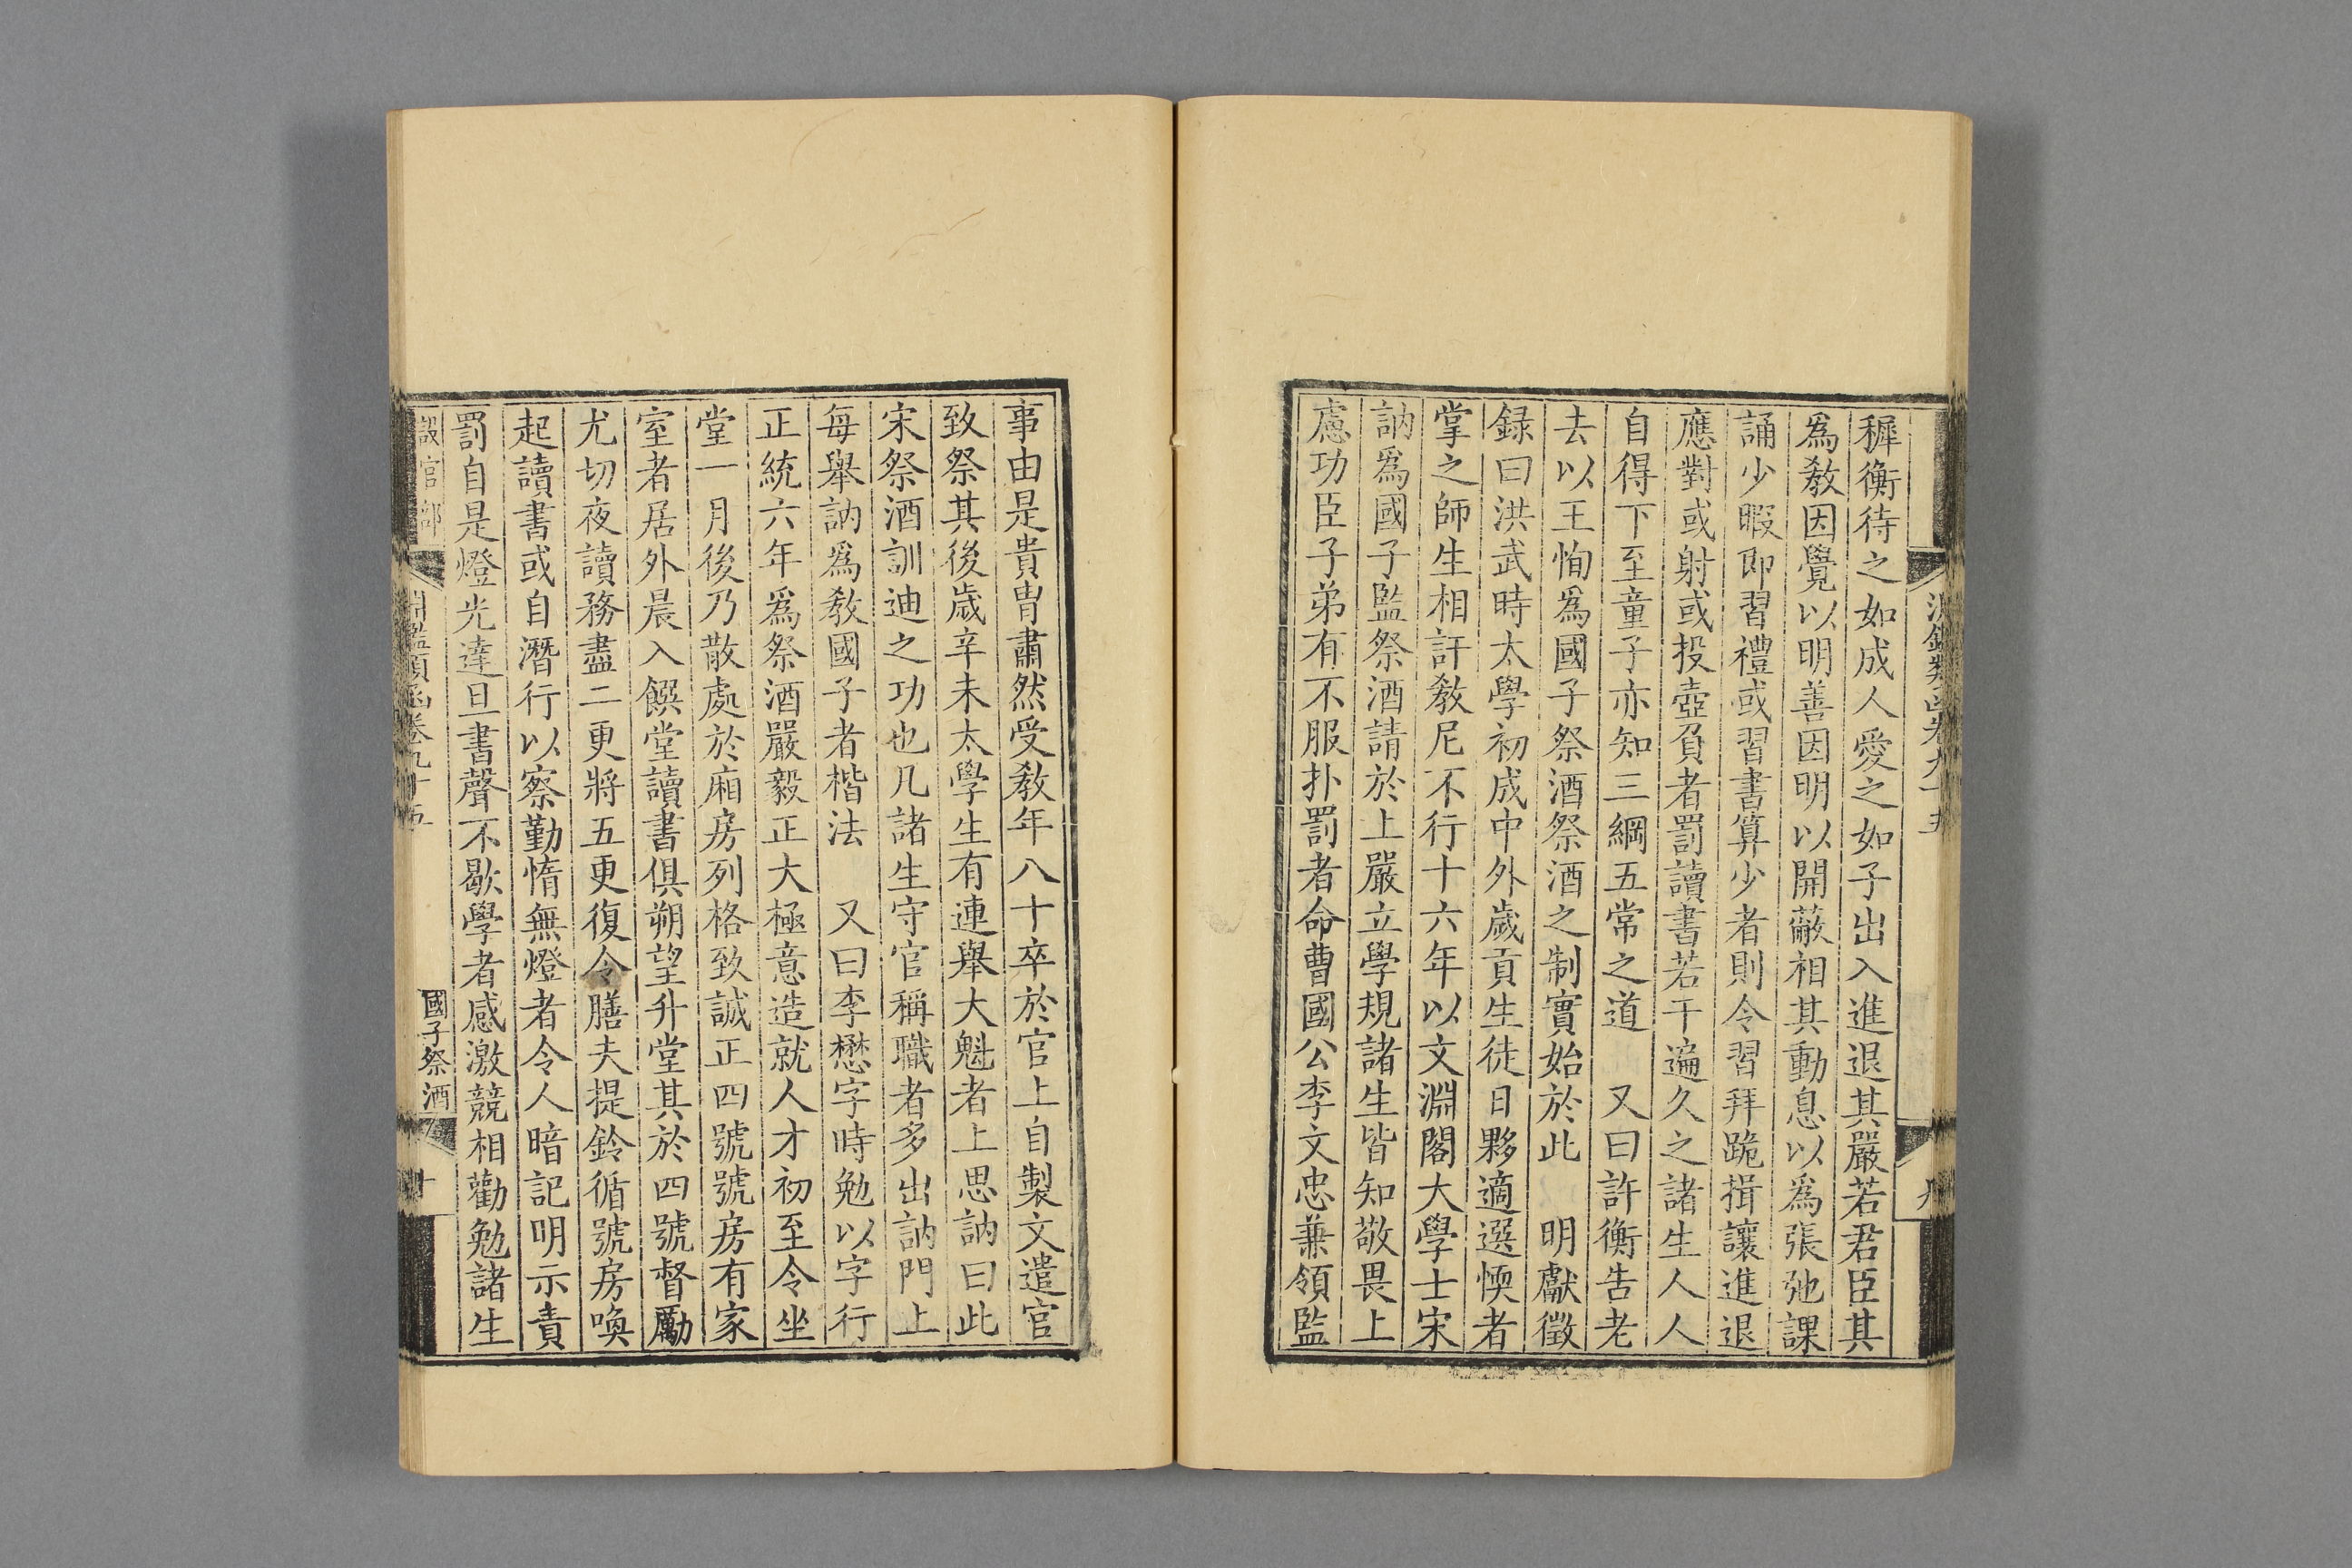 淵鑑類函卷九十五
九
穉衡待之如成人愛之如子出入進退其嚴若君臣其
爲敎因覺以明善因明以開蔽相其動息以爲張弛課
誦少暇卽習禮或習書算少者則令習拜跪揖讓進退
應對或射或投壺負者罰讀書若干遍久之諸生人人
自得下至童子亦知三綱五常之道　又曰許衡告老
去以王恂爲國子祭酒祭酒之制實始於此　明獻徵
録曰洪武時太學初成中外歲貢生徒日夥適選愞者
掌之師生相訐敎尼不行十六年以文淵閣大學士宋
訥爲國子監祭酒請於上嚴立學規諸生皆知敬畏上
慮功臣子弟有不服扑罰者命曹國公李文忠兼領監
事由是貴胄肅然受敎年八十卒於官上自製文遣官
致祭其後歲辛未太學生有連舉大魁者上思訥曰此
宋祭酒訓迪之功也凡諸生守官稱職者多出訥門上
每舉訥爲敎國子者楷法　又曰李懋字時勉以字行
正統六年爲祭酒嚴毅正大極意造就人才初至令坐
堂一月後乃散處於廂房列格致誠正四號號房有家
室者居外晨入饌堂讀書俱朔望升堂其於四號督勵
尤切夜讀務盡二更將五更復令膳夫提鈴循號房喚
起讀書或自潛行以察勤惰無燈者令人暗記明示責
罰自是燈光達旦書聲不歇學者感激競相勸勉諸生
設官部
淵鑑類函卷九十五
國子祭酒
十